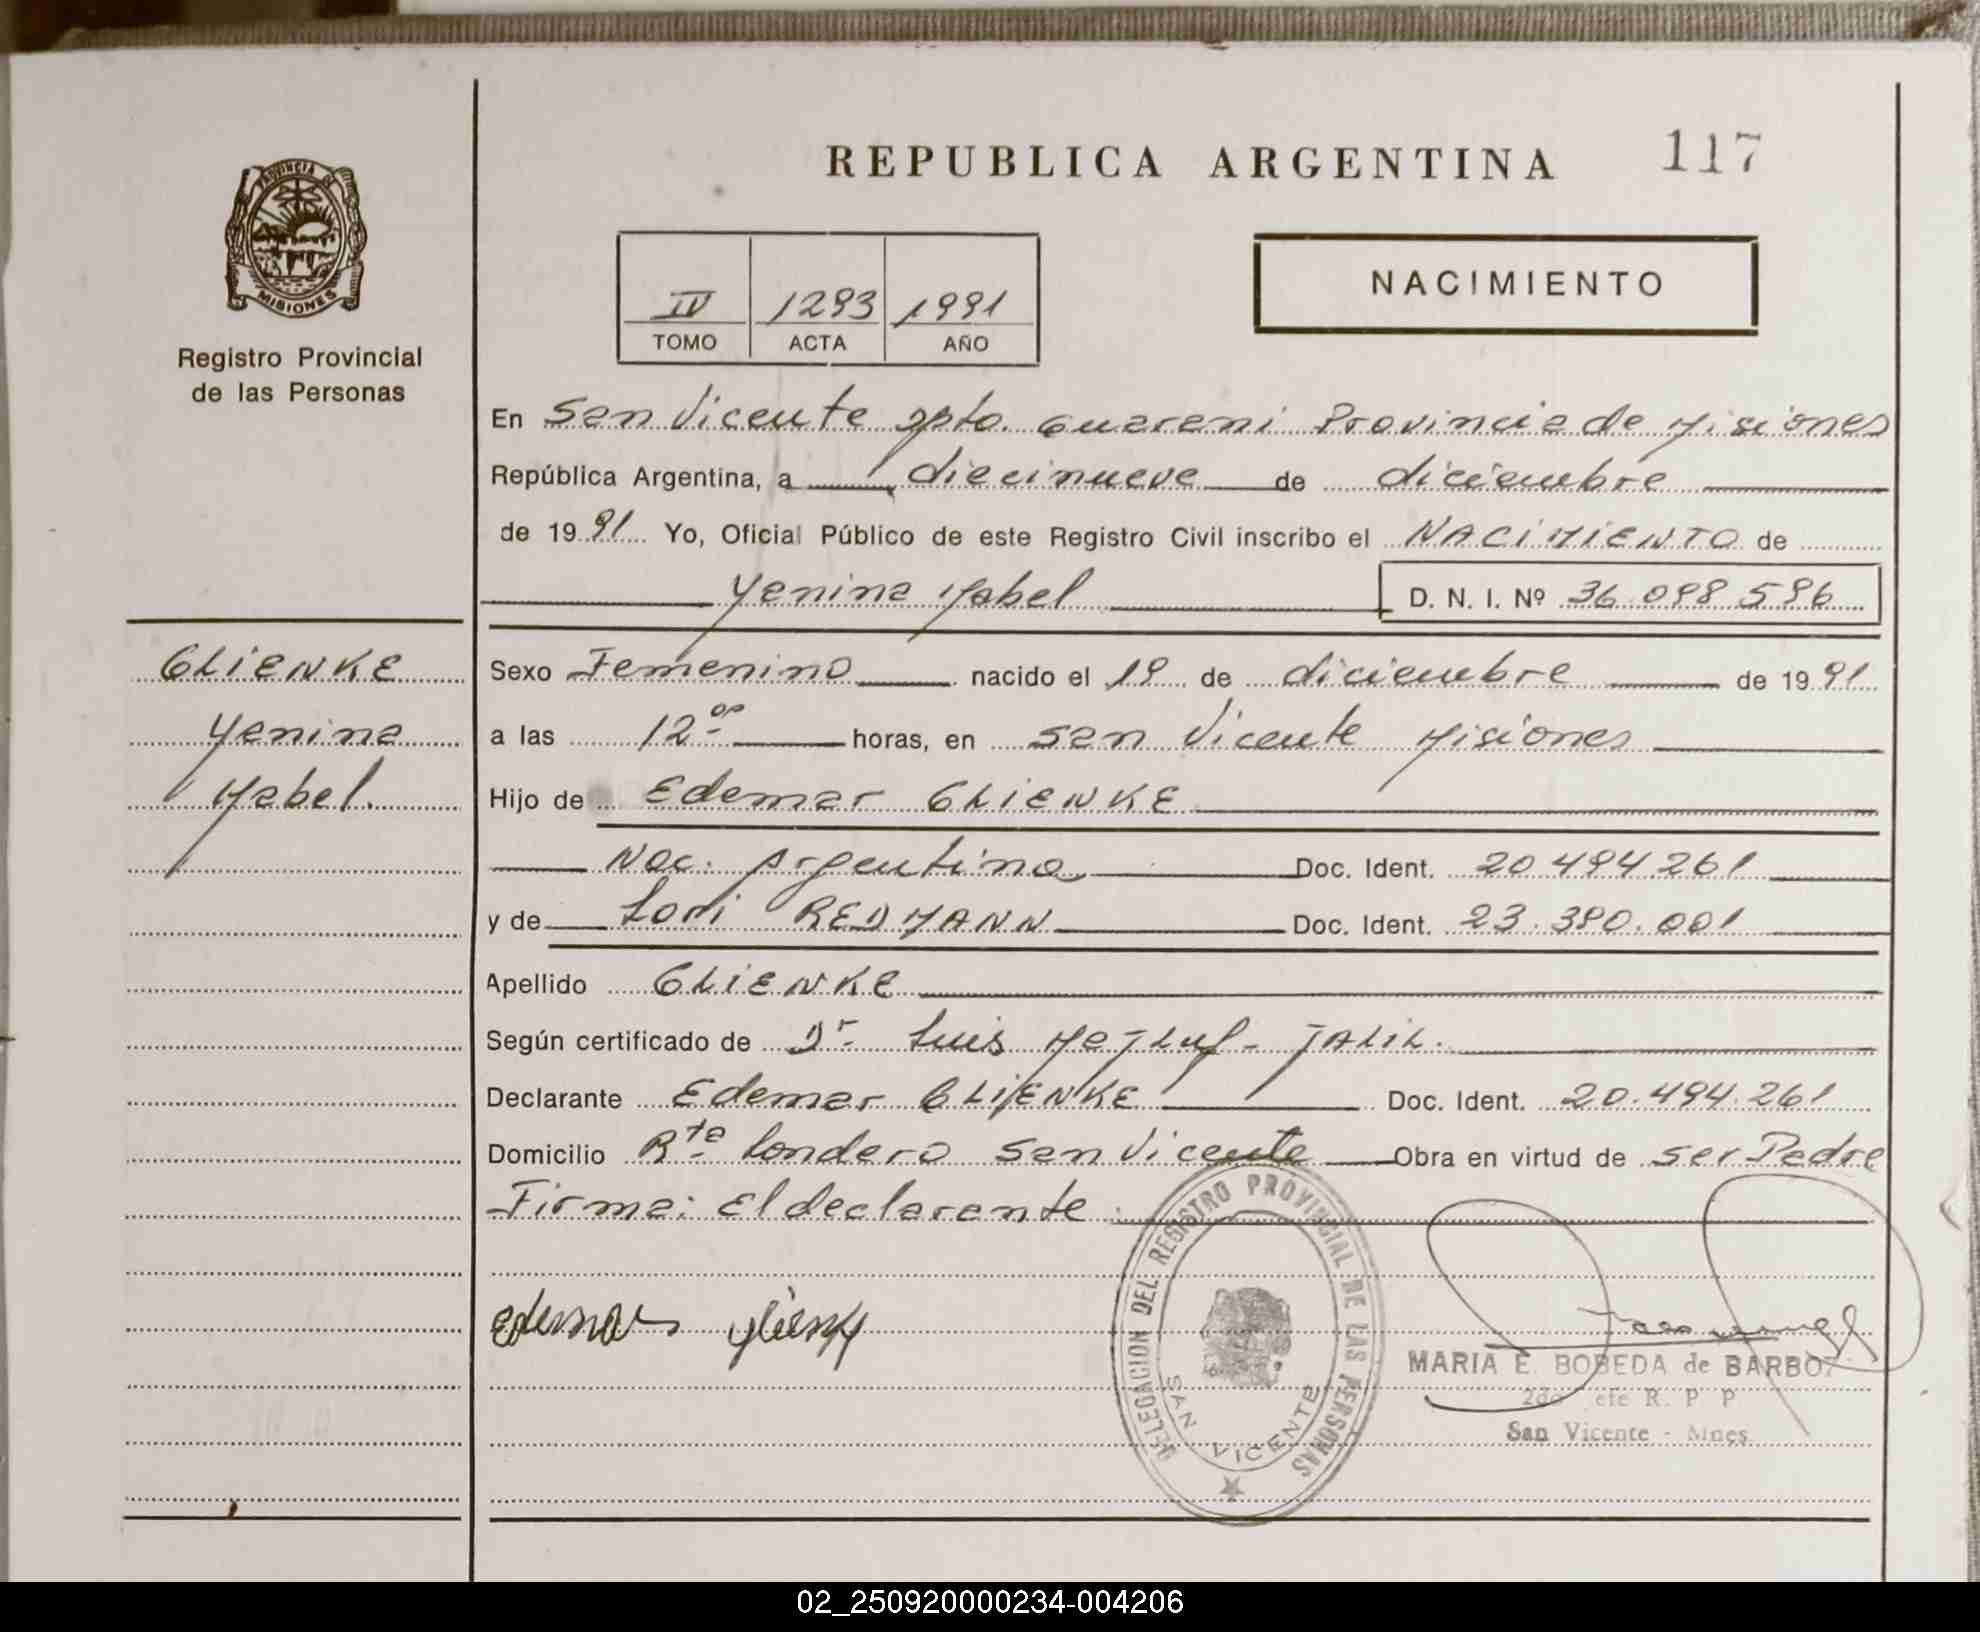 REPUBLICA ARGENTINA 117
PROVINCIA DE
MISIONES
Registro Provincial
de las Personas
NACIMIENTO
IV 1293 1991
TOMO ACTA AÑO
En San Vicente Dpto. Guarani Provincia de Misiones
República Argentina, a diecinueve de diciembre
de 1991 Yo, Oficial Público de este Registro Civil inscribo el NACIMIENTO de
Yanina Mabel D. N. I. Nº 36.098.596
GLIENKE
Yanina
Mabel.
Sexo Femenino nacido el 19 de diciembre de 1991
a las 12 00 horas, en San Vicente Misiones
Hijo de Edemar GLIENKE
Nac. Argentina Doc. Ident. 20.494.261
y de Lori REDMANN Doc. Ident. 23.380.001
Apellido GLIENKE
Según certificado de Dr. Luis JALIL.
Declarante Edemar GLIENKE Doc. Ident. 20.494.261
Domicilio Rta Londero San Vicente Obra en virtud de ser Padre
Firma: El declarante
DELEGACION DEL REGISTRO PROVINCIAL DE LAS PERSONAS
SAN VICENTE
MARIA E. BOBEDA de BARBOZ
2do Jefe R. P. P
San Vicente - Mnes
02_250920000234-004206